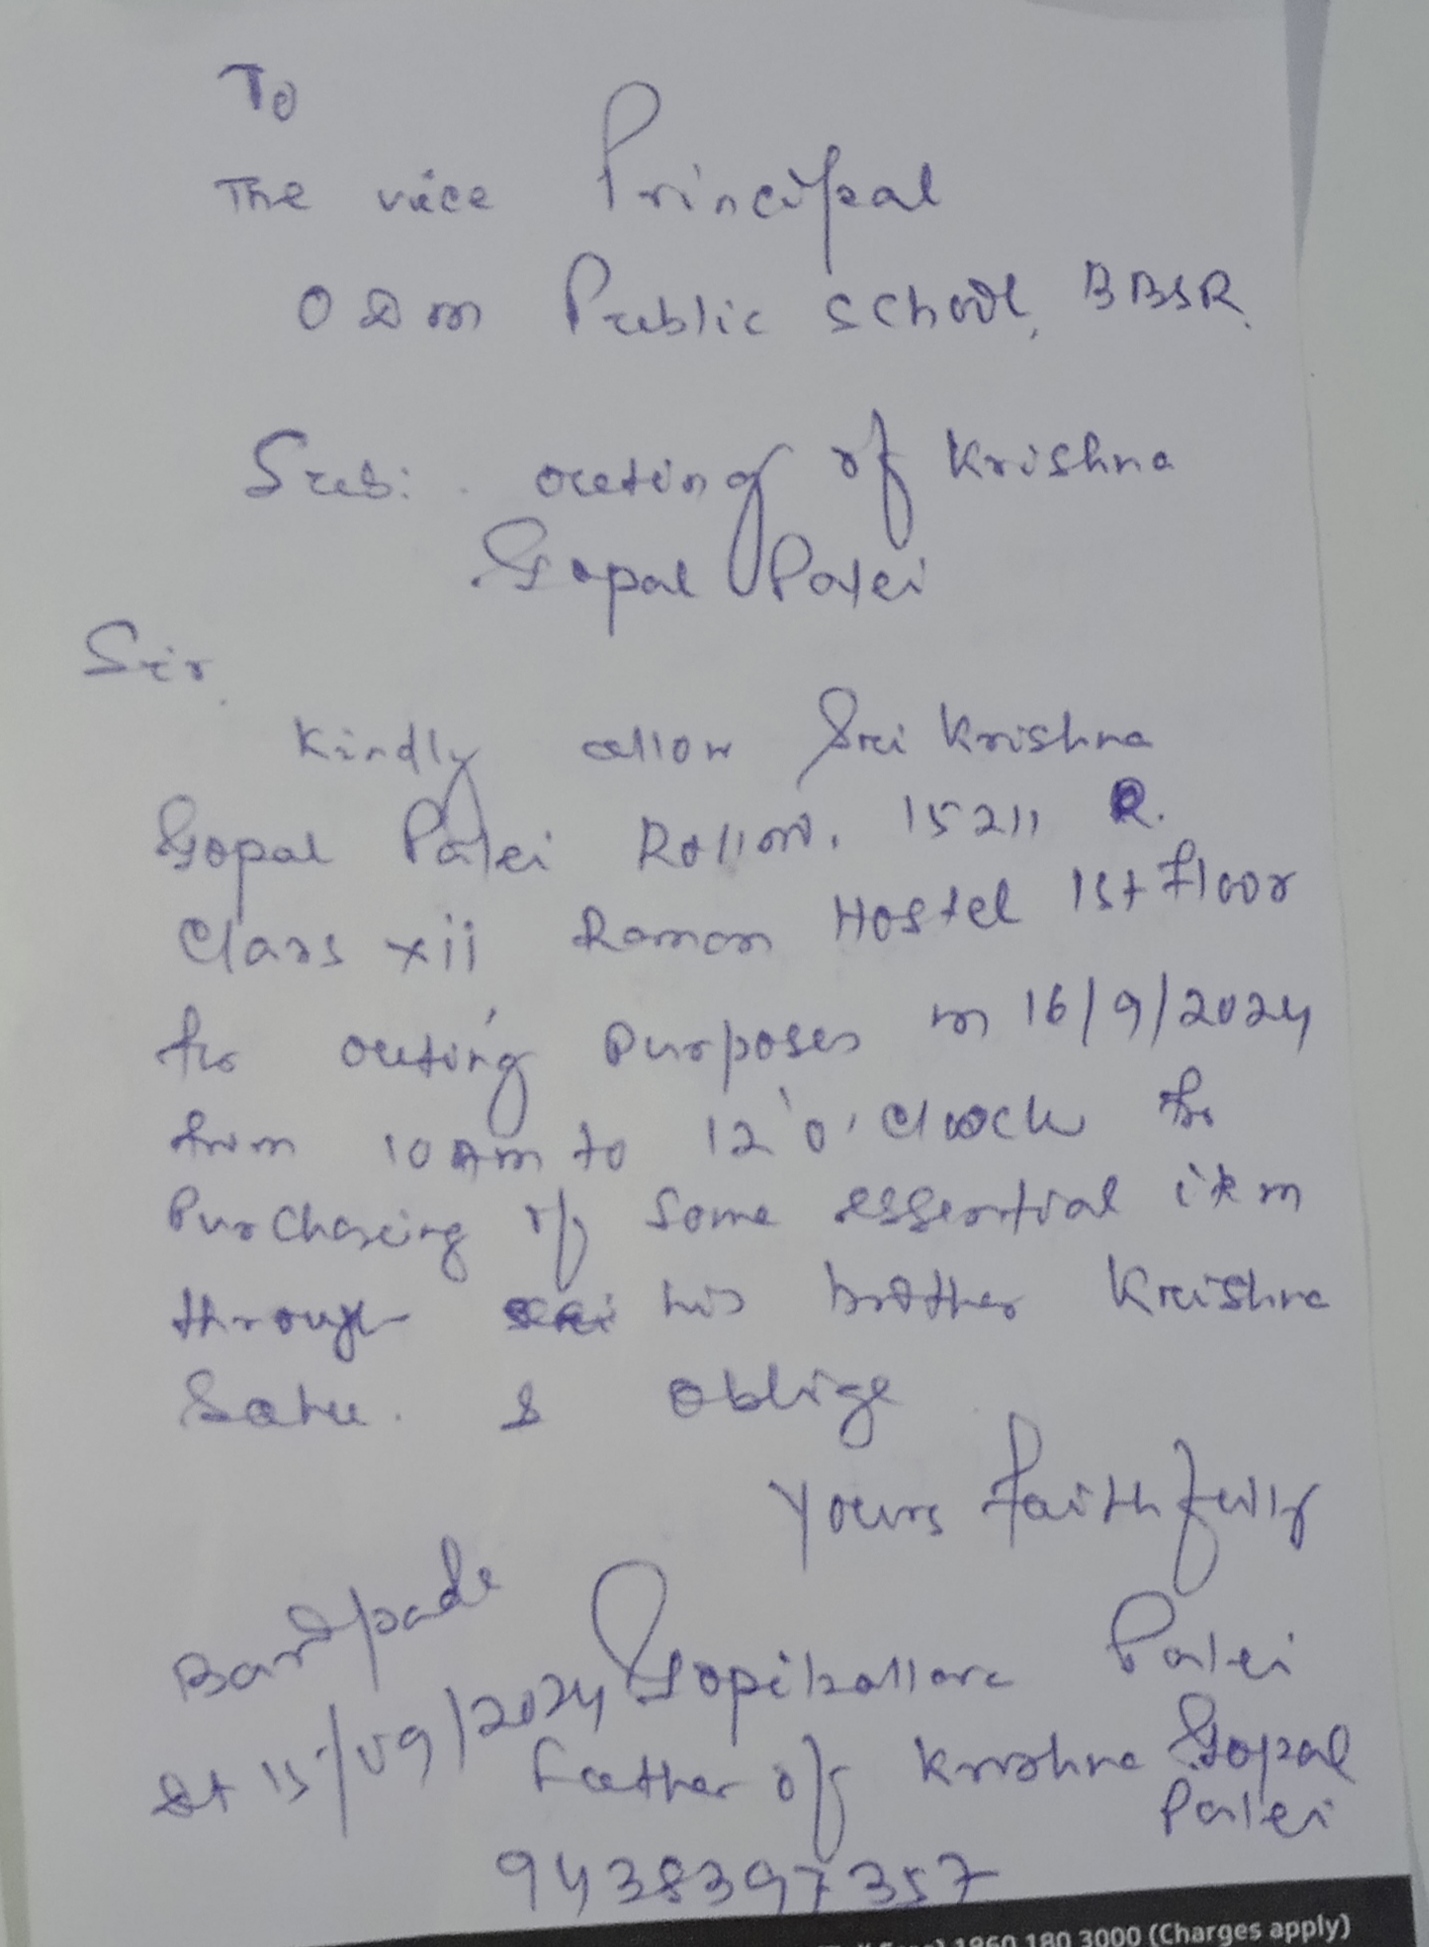 To
The vice Principal
ODM Public School, BBSR.
Sub: outing of Krishna
Gopal Palei
Sir
Kindly allow Sri Krishna
Gopal Palei Rollno. 15211 R.
Class xii Raman Hostel 1st floor
for outing purposes on 16/9/2024
from 10 Am to 12'0' clock for
Purchasing of some essential item
through his brother Krishna
Sahu. & oblige
yours faithfully
Baripada
Gopiballava Palei
dt 15/09/2024
Father of Krishna Gopal
Palei
9438397357
1860 180 3000 (Charges apply)